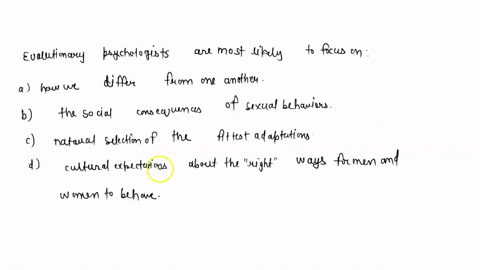 Evolutionary psychologists are most likely to focus on:
a) how we differ from one another.
b) the social consequences of sexual behaviors.
c) natural selection of the fittest adaptations
d) cultural expectations about the "right" ways for men and
women to behave.